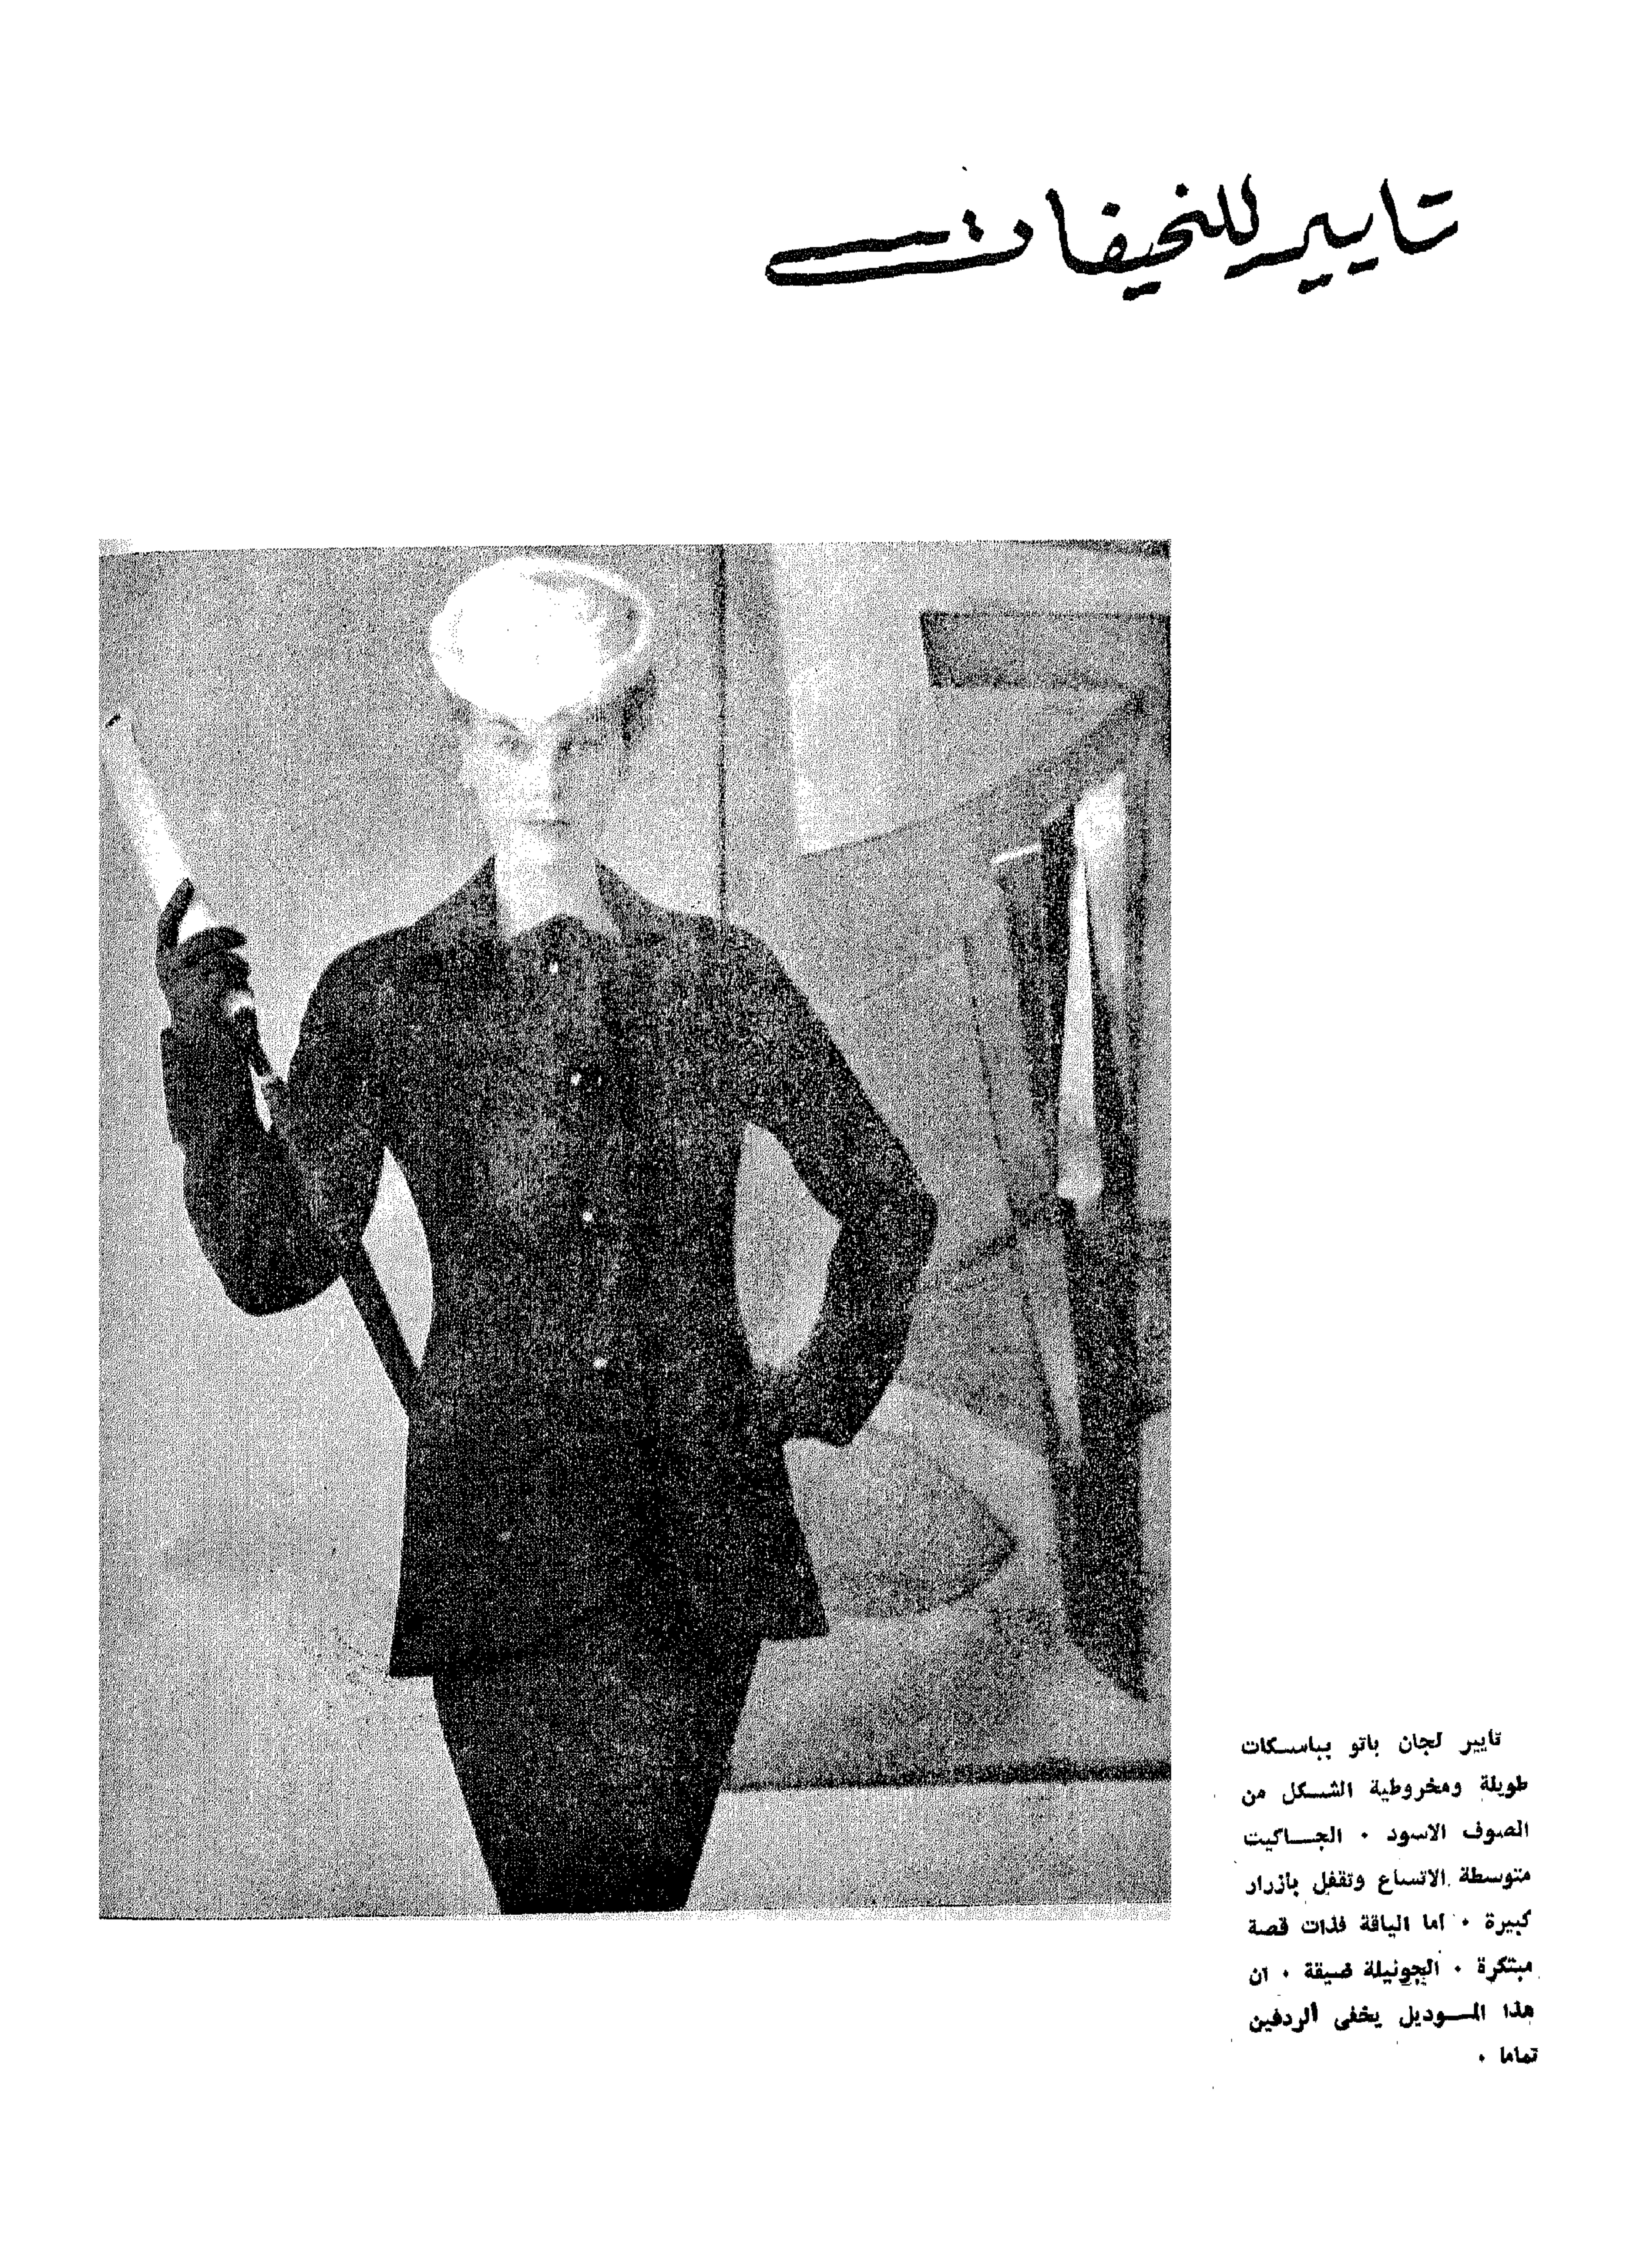 تايير للنحيفات
تايير لجان باتو بباسكات
طويلة ومخروطية الشكل من
الصوف الاسود . الجاكيت
متوسطة الاتساع وتقفل بأزرار
كبيرة . اما الياقة فذات قصة
مبتكرة . الجونيلة ضيقة . ان
هذا الموديل يخفى الردفين
تماما .